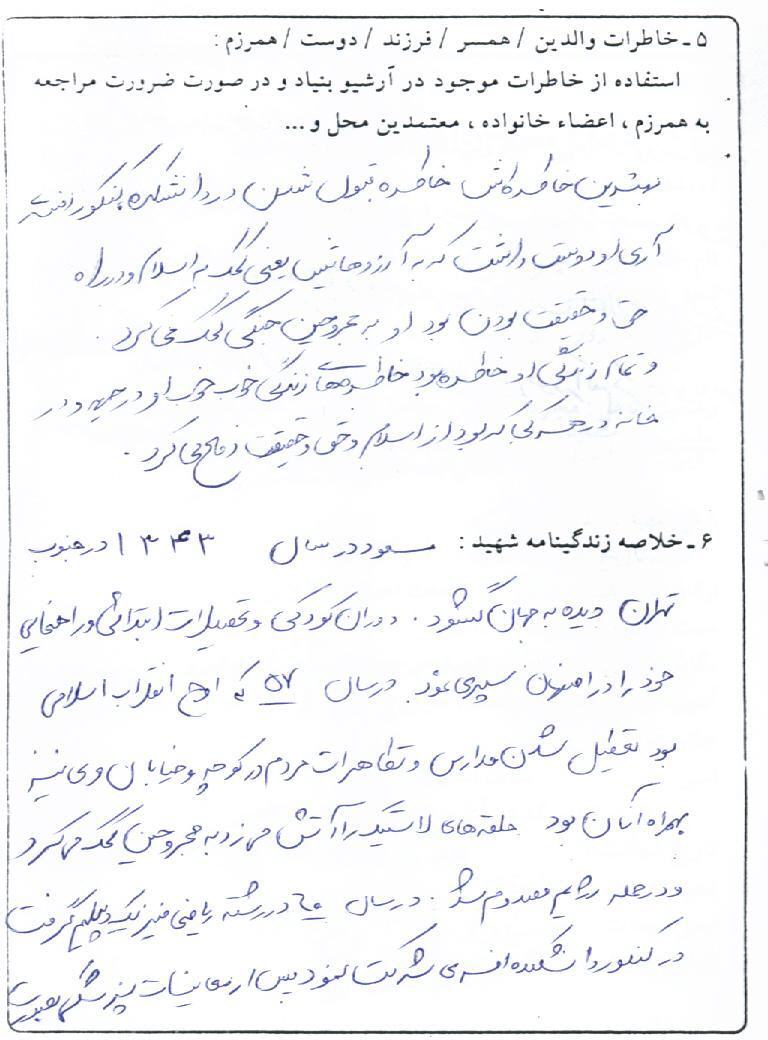 ۵ ـ خاطرات والدین / همسر / فرزند / دوست / همرزم :
استفاده از خاطرات موجود در آرشیو بنیاد و در صورت ضرورت مراجعه
به همرزم ، اعضاء خانواده ، معتمدین محل و ...
بهترین خاطره‌اش خاطره قبول شدن در دانشکده کنکور افسری
آری او دوست داشت که به آرزوهایش یعنی کمک به اسلام و در راه
حق و حقیقت بودن بود او به مجروحین جنگی کمک می کرد .
و تمام زندگی او خاطره بود خاطره‌های زندگی خوب خوب او در جبهه و در
خانه و در هر کجا که بود از اسلام و حق و حقیقت دفاع می کرد .
۶ ـ خلاصه زندگینامه شهید : مسعود در سال ۱۳۴۳ در جنوب
تهران دیده به جهان گشود . دوران کودکی و تحصیلات ابتدائی و راهنمایی
خود را در اصفهان سپری نمود . در سال ۵۷ که اوج انقلاب اسلامی
بود تعطیل شدن مدارس و تظاهرات مردم در کوچه و خیابان وی نیز
بهمراه آنان بود حلقه های لاستیک را آتش می زد به مجروحین کمک می کرد
و در حمله رژیم مصدوم شد . در سال ۶۰ در رشته ریاضی فیزیک دیپلم گرفت
در کنکور دانشکده افسری شرکت نمود پس از معاینات پزشکی بصورت